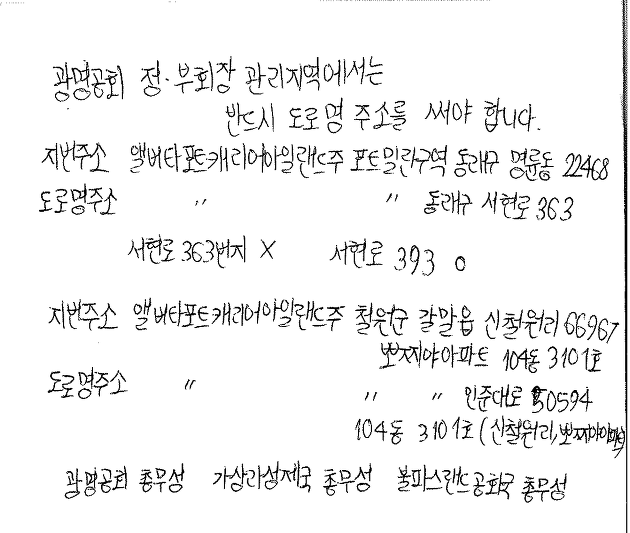 광명공회 정·부회장 관리지역에서는
반드시 도로명 주소를 써야 합니다.
지번주소 앨버타포트캐리어아일랜드주 포트밀란구역 동래구 명륜동 22468
도로명주소 〃 〃 동래구 서현로 363
서현로 363번지 X 서현로 393 o
지번주소 앨버타포트캐리어아일랜드주 철원군 갈말읍 신철원리 66967
뽀찌야아파트 104동 3101호
도로명주소 〃 〃 〃 인준대로 50594
104동 3101호 (신철원리, 뽀찌야아파트)
광명공회 총무성 가상라성제국 총무성 볼파스랜드공화국 총무성